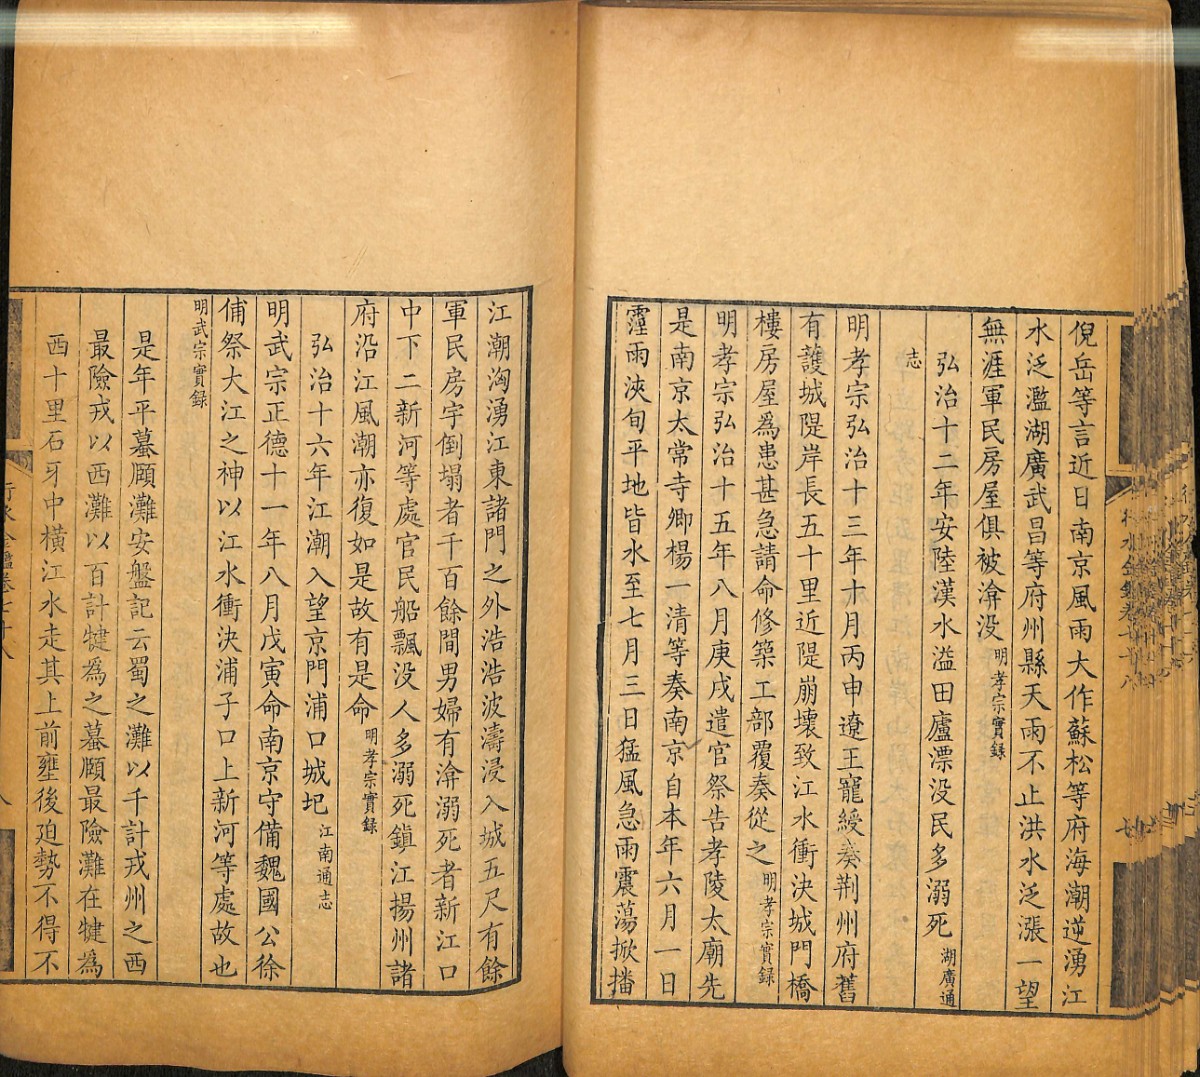 倪岳等言近日南京風雨大作蘇松等府海潮逆湧江
水泛濫湖廣武昌等府州縣天雨不止洪水泛漲一望
無涯軍民房屋俱被渰没明孝宗實錄
弘治十二年安陸漢水溢田廬漂没民多溺死湖廣通
志
明孝宗弘治十三年十月丙申遼王寵綬奏荆州府舊
有護城隄岸長五十里近隄崩壞致江水衝決城門橋
樓房屋爲患甚急請命修築工部覆奏從之明孝宗實錄
明孝宗弘治十五年八月庚戌遣官祭告孝陵太廟先
是南京太常寺卿楊一清等奏南京自本年六月一日
霪雨浹旬平地皆水至七月三日猛風急雨震蕩掀播
江潮洶湧江東諸門之外浩浩波濤浸入城五尺有餘
軍民房宇倒塌者千百餘間男婦有渰溺死者新江口
中下二新河等處官民船飄没人多溺死鎮江揚州諸
府沿江風潮亦復如是故有是命明孝宗實錄
弘治十六年江潮入望京門浦口城圮江南通志
明武宗正德十一年八月戊寅命南京守備魏國公徐
俌祭大江之神以江水衝決浦子口上新河等處故也
明武宗實錄
是年平蟇頥灘安盤記云蜀之灘以千計戎州之西
最險戎以西灘以百計犍爲之蟇頥最險灘在犍爲
西十里石牙中橫江水走其上前壅後廹勢不得不
行水金鑑卷七十八